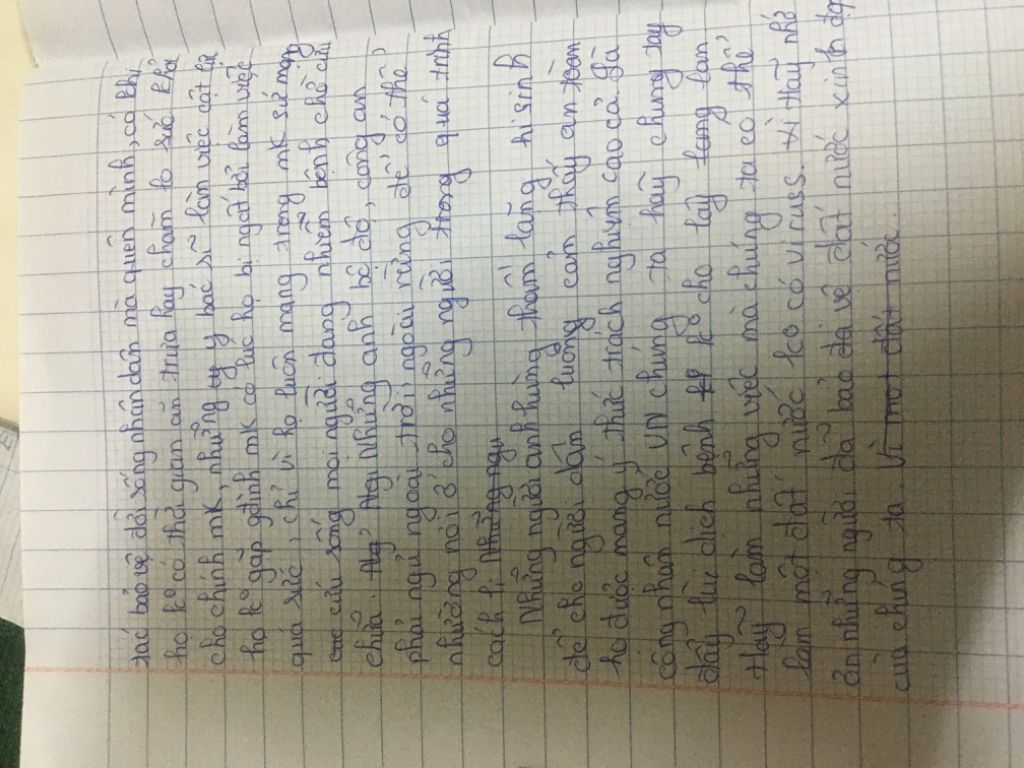 tác bảo vệ đời sống nhân dân mà quên mình, có khi
họ ko có thời gian ăn trưa hay chăm lo sức khỏe
cho chính mk, những ty y bác sĩ làm việc cật lực
họ ko gặp gđình mk có lúc họ bị ngất bởi làm việc
quá sức, chỉ vì họ luôn mạng trong mk sứ mạng
cứu sống mọi người đang nhiễm bệnh chờ cứu
chữa. Những anh bộ đội, công an
phải ngủ ngoài trời ngoài rừng để có thể
nhường nơi ở cho những người trong quá trình
cách li Những ngu
Những người anh hùng thầm lặng hi sinh
để cho người dân luông cảm thấy an toàn
họ được mang ý thức trách nghiệm cao cả là
công nhân nước VN chúng ta hãy chung tay
đẩy lùi dịch bệnh ko cho lây lang lan
Hãy làm những việc mà chúng ta có thể
làm một đất nước ko có viruss. vì Hãy nhớ
ơn những người đã bảo vệ đất nước xinh đẹp
của chúng ta Vì một đất nước.